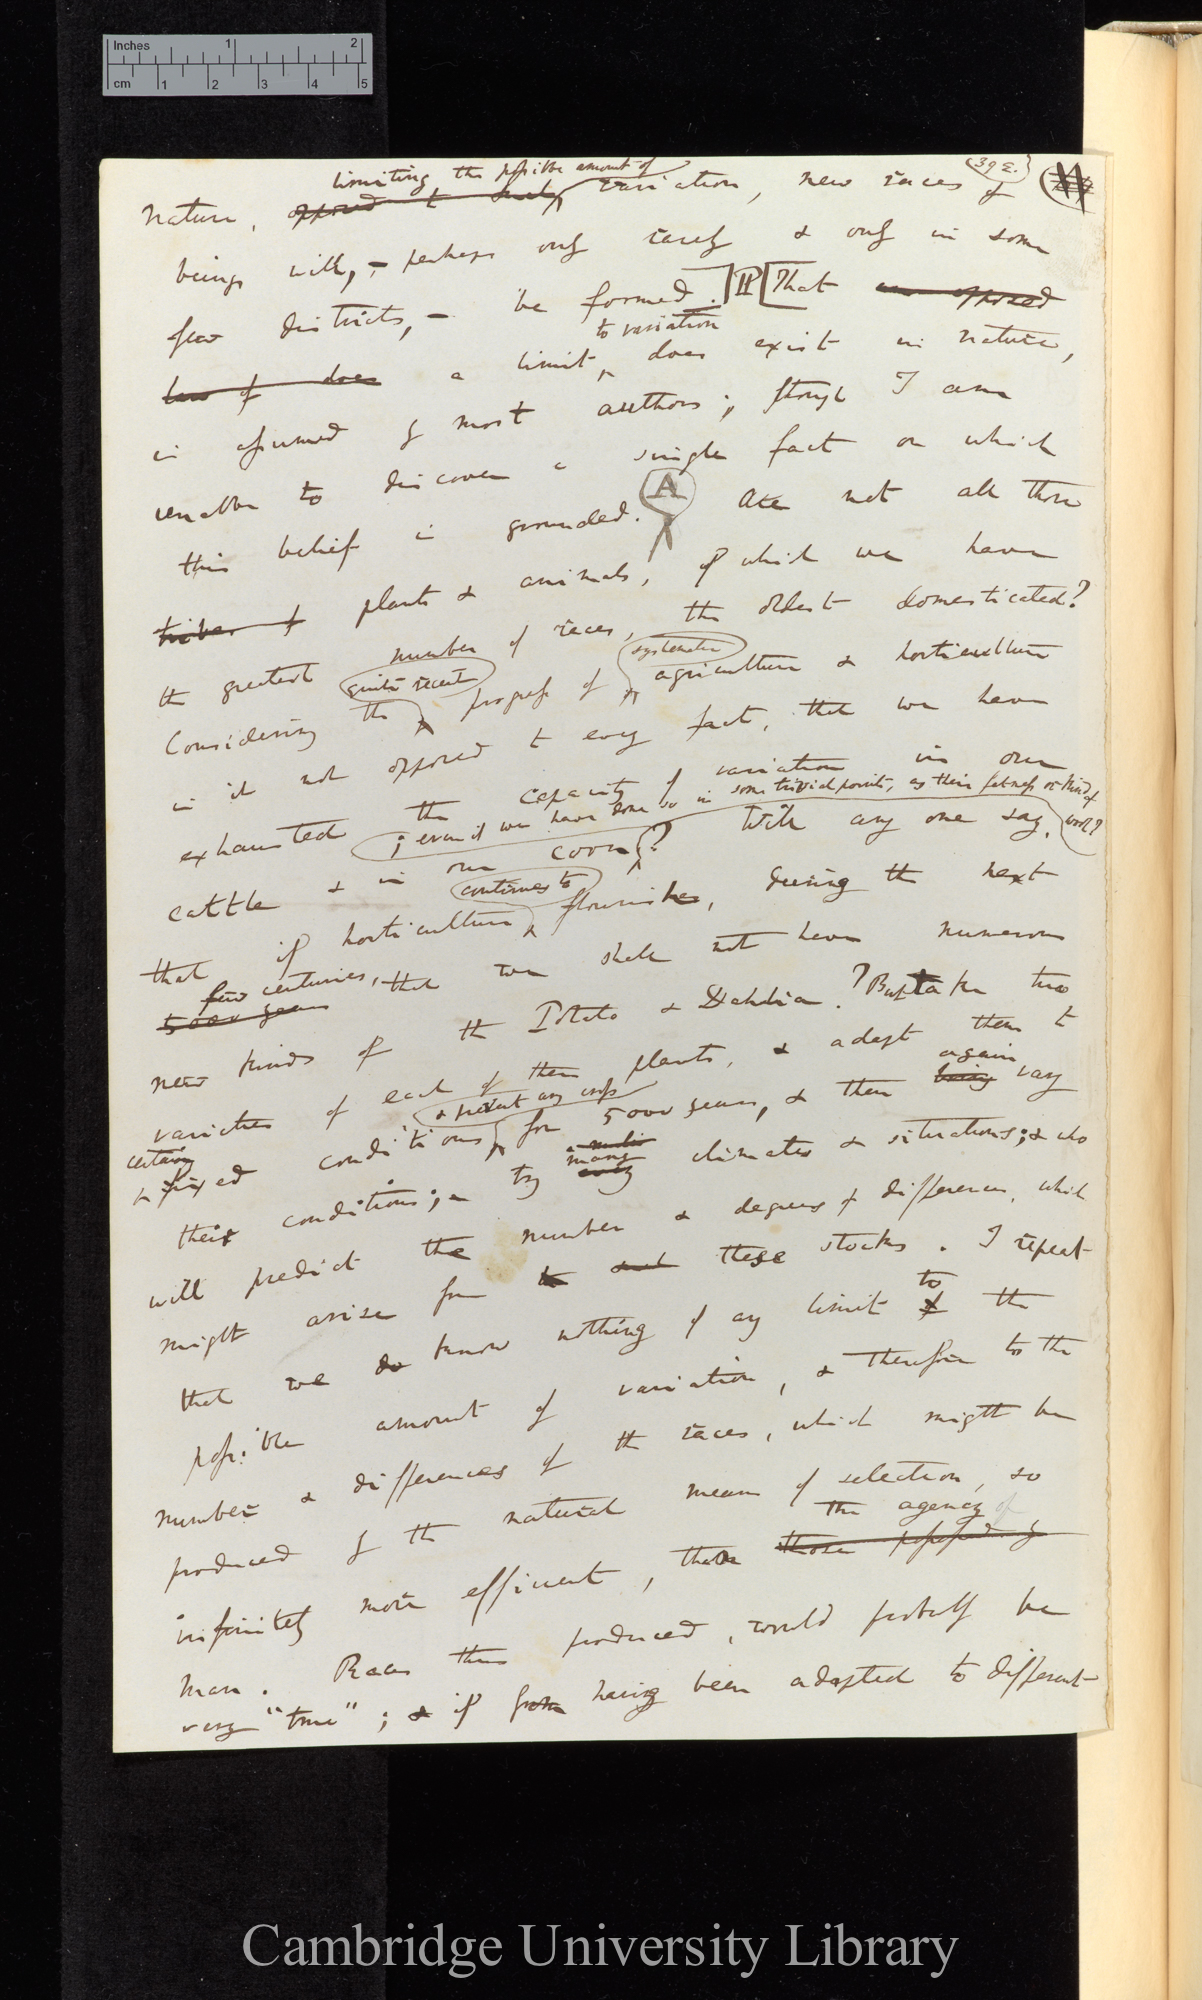 Inches 1 2
cm 1 2 3 4 5
39 E.
limiting the possible amount of
nature, opposed to such variation, new races of
beings will, – perhaps only rarely & only in some
few districts, – be formed. That opposed
to variation
law of does a limit does exist in nature,
is assumed by most authors; though I am
unable to discover a single fact on which
this belief is grounded. A Are not all those
tribes of plants & animals, of which we have
the greatest number of races, the oldest domesticated?
quite recent systematic
Considering the progress of agriculture & horticulture
is it not opposed to every fact, that we have
exhausted the capacity of variation in our
; even if we have done so in some trivial points, as their fatness or kind of wool?
cattle & in our corn? Will any one say,
continues to
that if horticulture flourishes, during the next
few centuries,
5000 years that we shall not have numerous
new kinds of the Potato & Dahlia? But take two
varieties of each of these plants, & adapt them to
certain & prevent any crops again
fixed conditions for 5000 years, & then being vary
many
their conditions; – try every climates & situations; & who
will predict the number & degrees of difference, which
might arise from the these stocks. I repeat
to
that we do know nothing of any limit of the
possible amount of variation, & therefore to the
number & differences of the races, which might be
produced by the natural means of selection, so
the agency of
infinitely more efficient, than those possessed by
man. Races thus produced, would probably be
very "true"; & if from having been adapted to different
Cambridge University Library